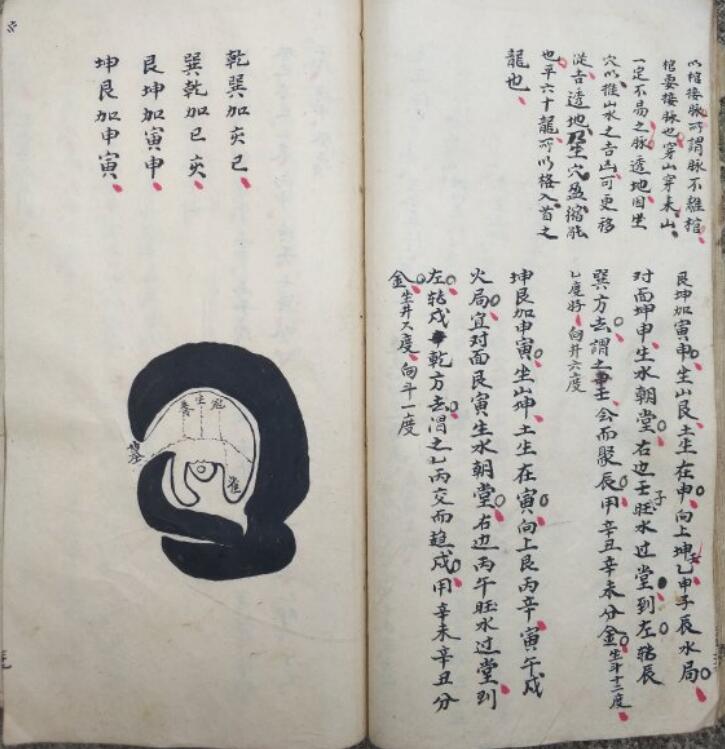 以棺接脉所謂脉不離棺
棺要接脉也穿山穿来山
一定不易之脉透地因坐
穴以推山水之吉凶可更移
從吉透地乃生穴盈縮能
也平六十龍所以格入首之
龍也
艮坤加寅申生山艮土生在申向上坤乙申子辰水局
对面坤申生水朝堂右边壬子旺水過堂到左轉辰
巽方去謂之壬会而聚辰用辛丑辛未分金生斗十二度
七度好向井六度
坤艮加申寅坐山坤土生在寅向上艮丙辛寅午戌
火局宜对面艮寅生水朝堂右边丙午旺水過堂到
左轉戌乾方去謂之乙丙交而趋戌用辛未辛丑分
金生井六度向斗一度
乾巽加亥巳
巽乾加巳亥
艮坤加寅申
坤艮加申寅
養生冠
墓